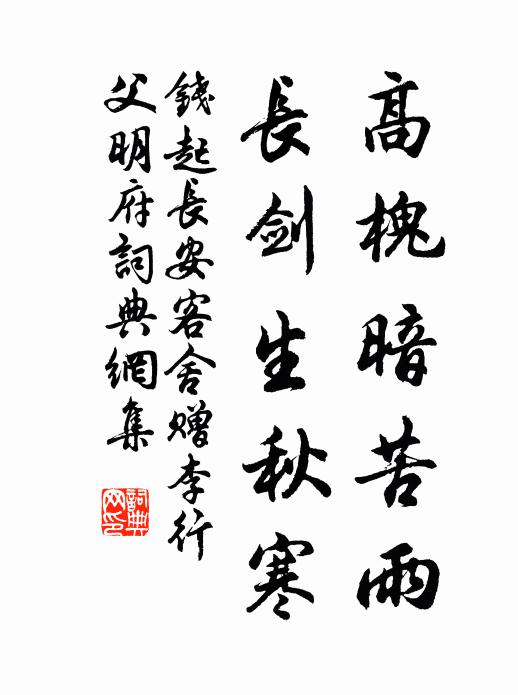 高槐暗苦雨
長劍生秋寒
錢起長安客舍贈李行
父明府詞典網集
詞典网印